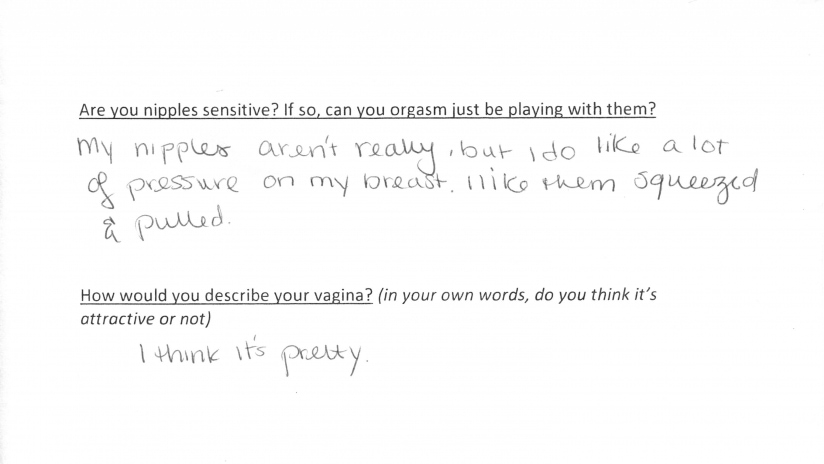 Are you nipples sensitive? If so, can you orgasm just be playing with them?
My nipples aren't really, but I do like a lot
of pressure on my breast. I like them squeezed
& pulled.
How would you describe your vagina? (in your own words, do you think it's
attractive or not)
I think it's pretty.